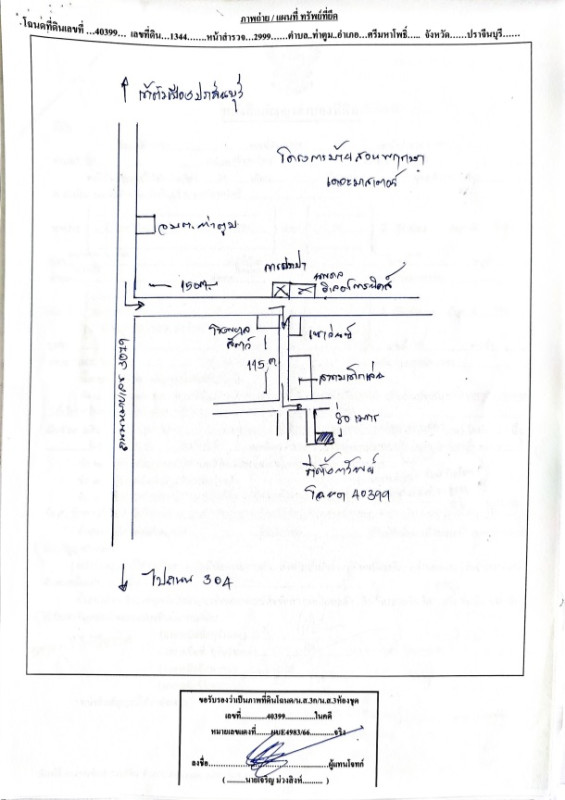 ภาพถ่าย / แผนที่ ทรัพย์ที่ยึด
โฉนดที่ดินเลขที่ ...40399... เลขที่ดิน...1344.......หน้าสำรวจ...2999.......ตำบล..ท่าตูม..อำเภอ...ศรีมหาโพธิ์..... จังหวัด......ปราจีนบุรี......
เข้าตัวเมืองปราจีนบุรี
โครงการบ้านสวนพฤกษา
อบต.ท่าตูม
การประปา
150ม.
โรงพยาบาล
สัตว์
115 ม
3079
80 เมตร
ที่ตั้งทรัพย์
โฉนด 40399
ไปถนน 304
ขอรับรองว่าเป็นภาพที่ดินโฉนด/น.ส.3ก/น.ส.3ห้องชุด
เลขที่..............40399................ในคดี
หมายเลขแดงที่.......ผบE4983/66............จริง
ลงชื่อ.......................................ผู้แทนโจทก์
(.........นายเจริญ ม่วงสิงห์..........)